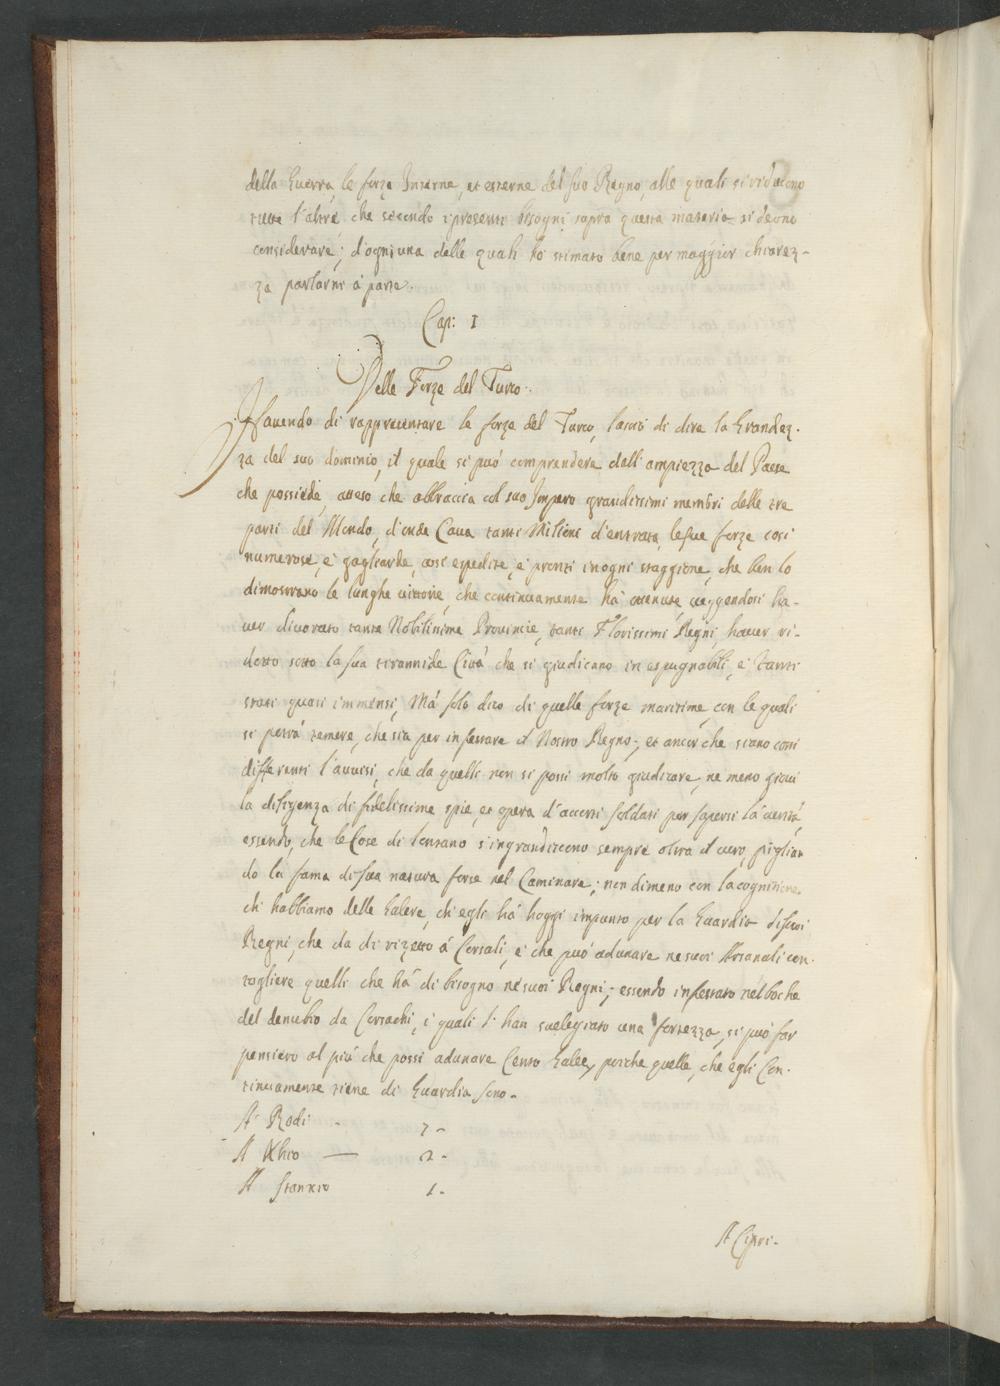 della Guerra, le forze Interne, et esterne del suo Regno, alle quali si riducono
tutte l'altre che secondo i presenti bisogni sopra questa materia si deono
considerare; d'ogniuna delle quali hò stimato bene per maggior chiarez-
za parlarne à parte.
Cap: I
Delle Forze del Turco.
Havendo di rappresentare le forze del Turco, lascio di dire la Grandez-
za del suo dominio, il quale si può comprendere dall'ampiezza del Paese
che possiede, atteso che abbraccia col suo Impero grandissimi membri delle tre
parti del Mondo, d'onde Cava tanti Milioni d'entrata, le sue forze così
numerose, e gagliarde, così espedite, e pronti in ogni staggione, che ben lo
dimostrano le lunghe vittorie, che continuamente hà ottenute, veggendosi ha-
ver divorato tante Nobilissime Provincie, tanti Florissimi Regni, haver ri-
dotto sotto la sua tirannide Città che si giudicano inespugnabili, e tanti
stati quasi immensi, Mà solo dico di quelle forze maritime, con le quali
si potrà temere, che sia per infestare il Nostro Regno; et ancor che siano così
differenti l'avvisi, che da quelli non si possi molto giudicare, ne meno giovi
la diligenza di fidelissime spie, et opera d'accorti soldati per sapersi la verità,
essendo, che le Cose di lontano s'ingrandiscono sempre oltra il vero, piglian
do la fama di sua natura forze nel Caminare; non dimeno con la cognitione
ch'habbiamo delle Galere, ch'egli hà hoggi in punto per la Guardia di suoi
Regni, che da di rizetto à Corsali, e che può adunare ne suoi Arsanali con
togliere quelli che hà di bisogno ne suoi Regni; essendo infestato nel boche
del denubio da Cosachi, i quali l'han svalegiato una fortezza, si può far
pensiero al più che possi adunare Cento Galee, perche quelle, che egli Con-
tinuamente tiene di Guardia sono.
A Rodi - 7-
A Xhio — 2-
A Stanxio 1.
A Cipri.